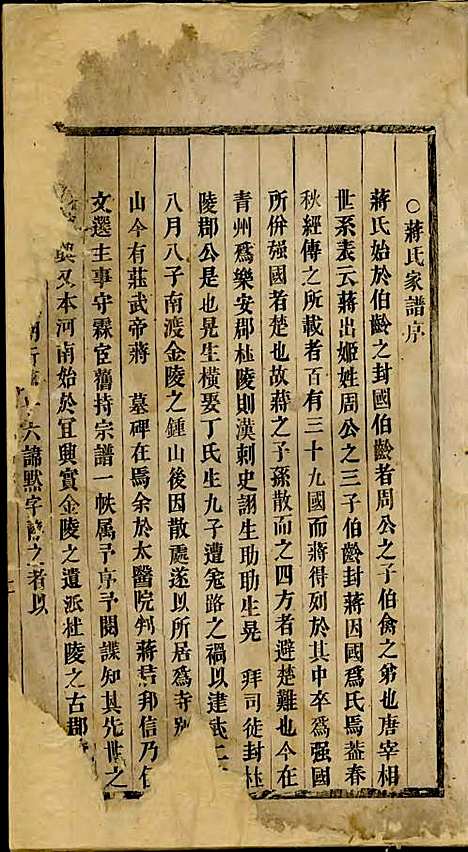 ○蔣氏家譜序
蔣氏始於伯齡之封國伯齡者周公之子伯禽之弟也唐宰相
世系表云蔣出姬姓周公之三子伯齡封蔣因國爲氏焉葢春
秋經傳之所載者百有三十九國而蔣得列於其中卒爲强國
所併强國若楚也故蔣之子孫散而之四方者避楚難也今在
青州爲樂安郡杜陵則漢刺史詡生助助生晃 拜司徒封杜
陵郡公是也晃生橫娶丁氏生九子遭兎路之禍以建武二
八月八子南渡金陵之鍾山後因散處遂以所居爲寺別
山今有莊武帝蔣 墓碑在焉余於太醫院判蔣 邦信乃仕
文選主事守霖宦舊持宗譜一帙属予序予閱諜知其先世之
興又本河南始於宜興實金陵之遺派杜陵之古郡
六諦㸃字 之者以